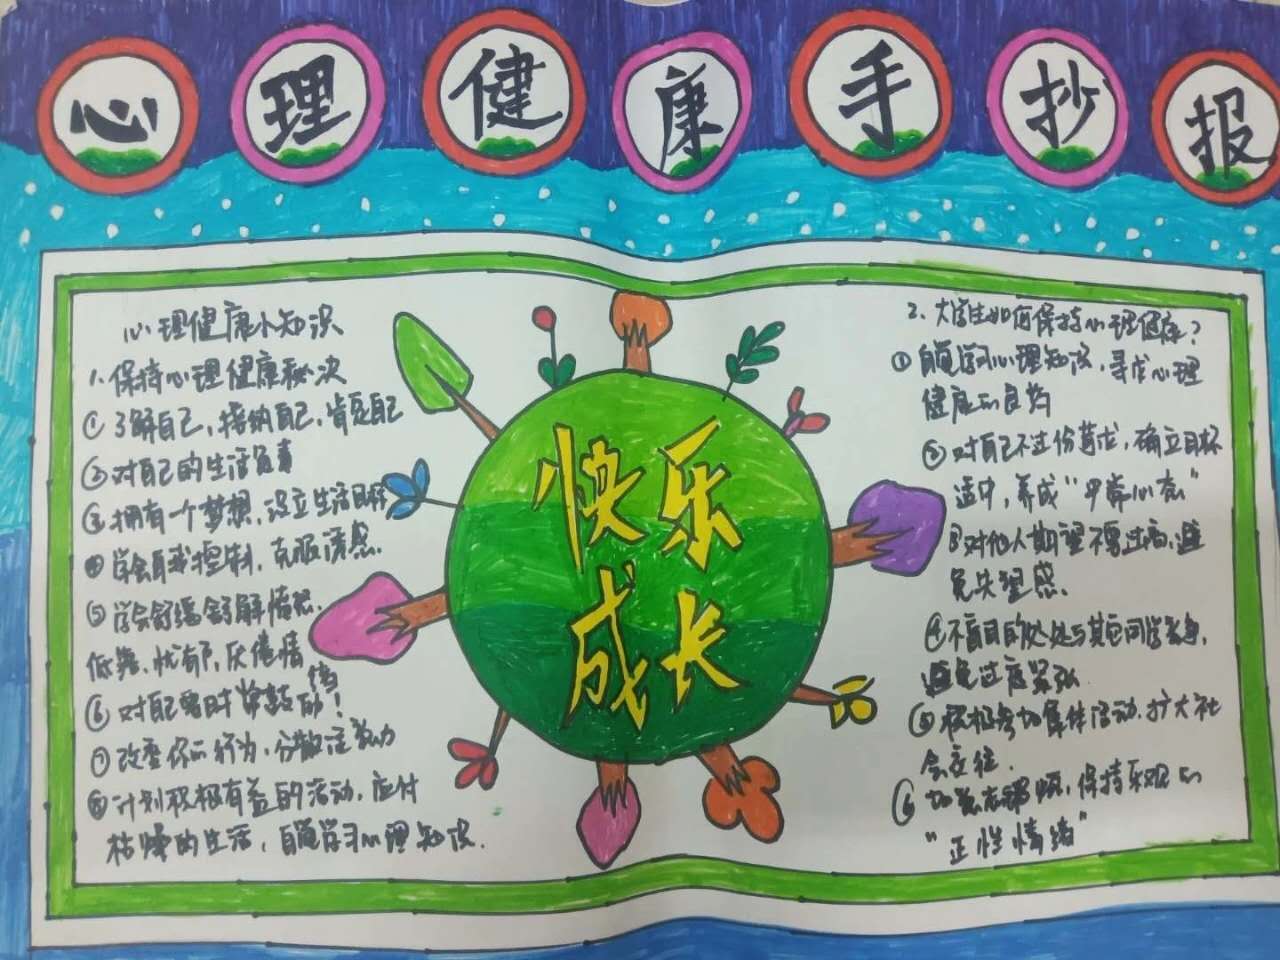 心理健康手抄报
心理健康小知识
1、保持心理健康秘决
①了解自己,接纳自己,肯定自己
②对自己的生活负责
③拥有一个梦想,设立生活目标
④学会自我控制,克服诱惑.
⑤学会舒缓舒解情绪、
低落、忧郁、厌倦情绪
⑥对自己要时常鼓励!
⑦改变你的行为,分散注意力
⑧计划积极有益的活动,应付
枯燥的生活,自觉学习心理知识.
快乐
成长
2、大学生如何保持心理健康?
①自觉学习心理知识,寻求心理
健康的良药
②对自己不过份苛求,确立目标
适中,养成“平常心态”
③对他人期望不要过高,避
免失望感.
④不盲目的处处与其它同学竞争,
避免过度紧张.
⑤积极参加集体活动,扩大社
会交往.
⑥加强锻炼,保持乐观的
“正性情绪”